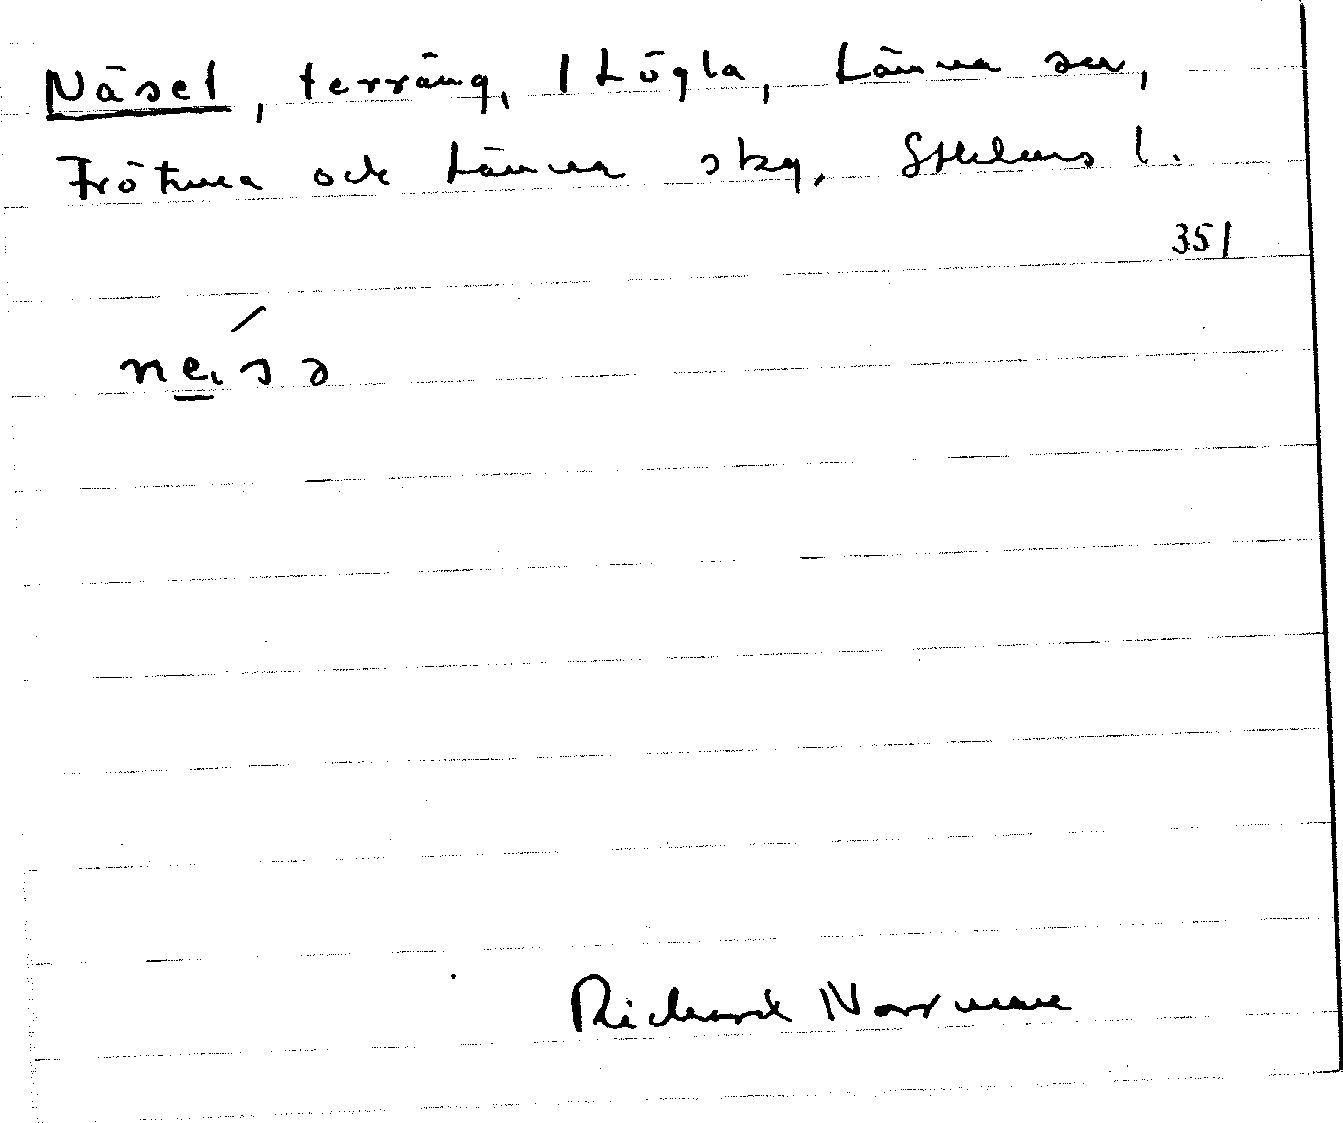 Näset, terräng, 1 Högla, Länna sn,
Frötuna och Länna skg, Sthlms l.
351
ne̲.sə
Richard Norrman